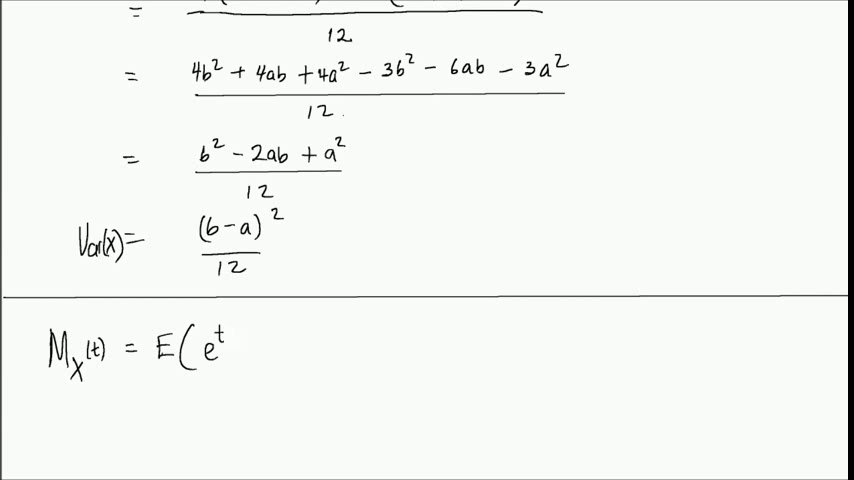 =
12
= 4b² + 4ab + 4a² − 3b² − 6ab − 3a²
12
= b² − 2ab + a²
12
Var(X) = (b−a)²
12
M_X(t) = E(e^t